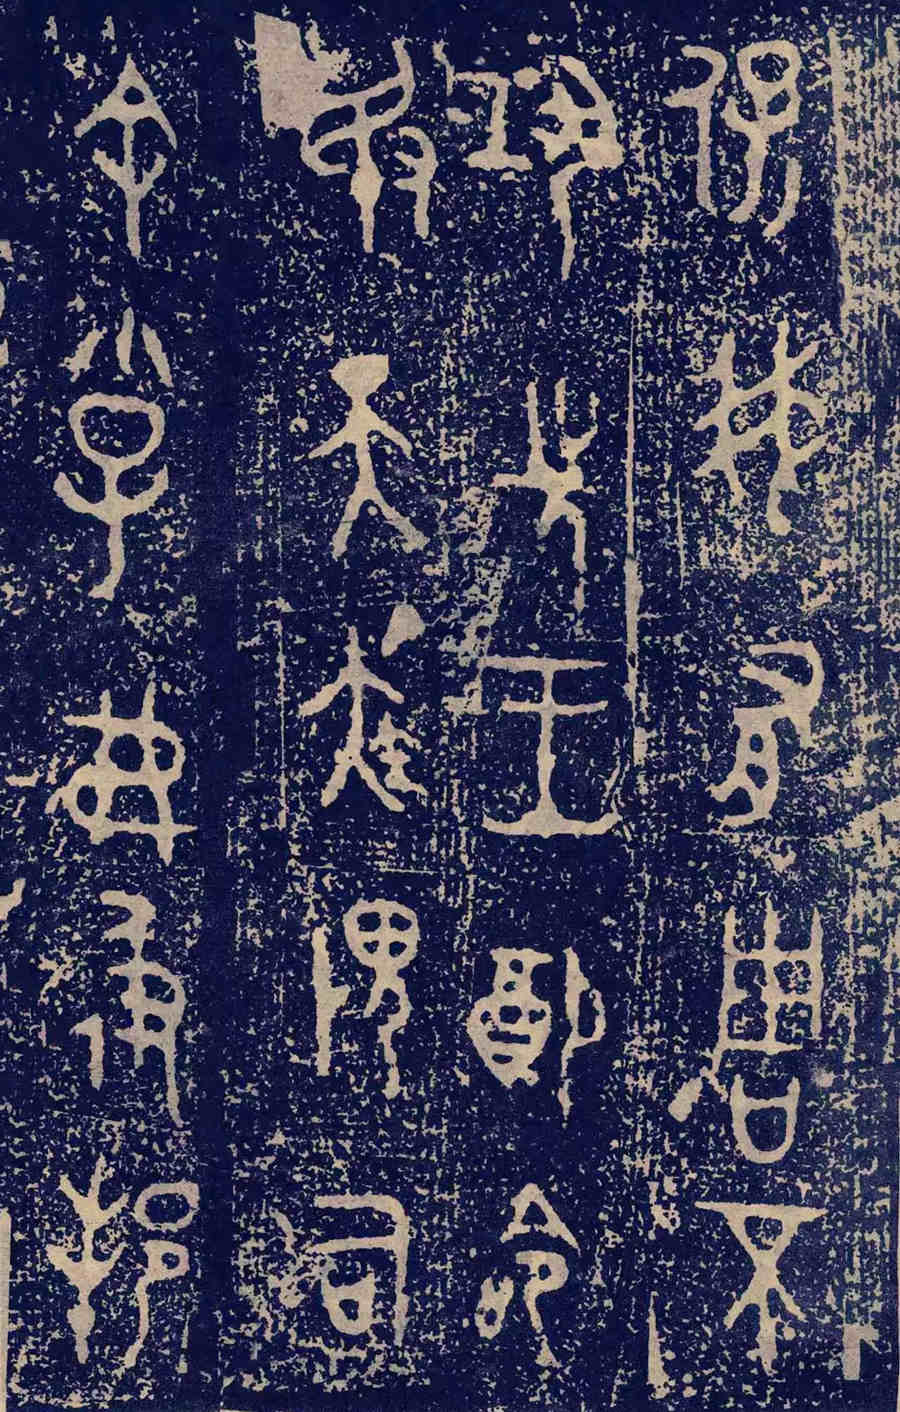 保我有周不
巩先王配命
敃天疾畏司
余小子弗彶邦